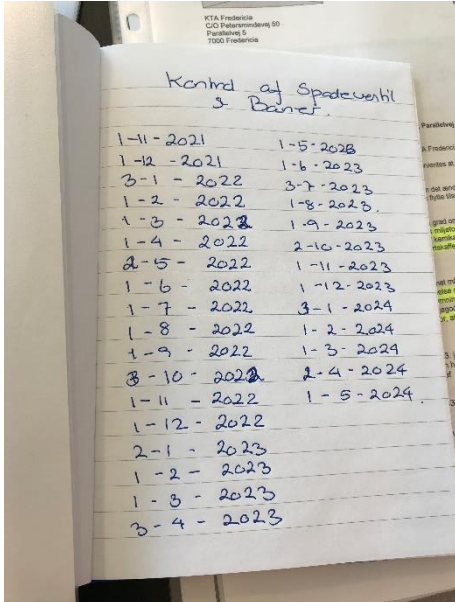 KTA Fredericia
C/O Petersmindevej 50
Parallelvej 5
7000 Fredericia
Kontrol af Spadeventil
& Barrer.
1-11-2021
1-12-2021
3-1-2022
1-2-2022
1-3-2022
1-4-2022
2-5-2022
1-6-2022
1-7-2022
1-8-2022
1-9-2022
3-10-2022
1-11-2022
1-12-2022
2-1-2023
1-2-2023
1-3-2023
3-4-2023
1-5-2023
1-6-2023
3-7-2023
1-8-2023.
1-9-2023
2-10-2023
1-11-2023
1-12-2023
3-1-2024
1-2-2024
1-3-2024
2-4-2024
1-5-2024.
Parallelvej